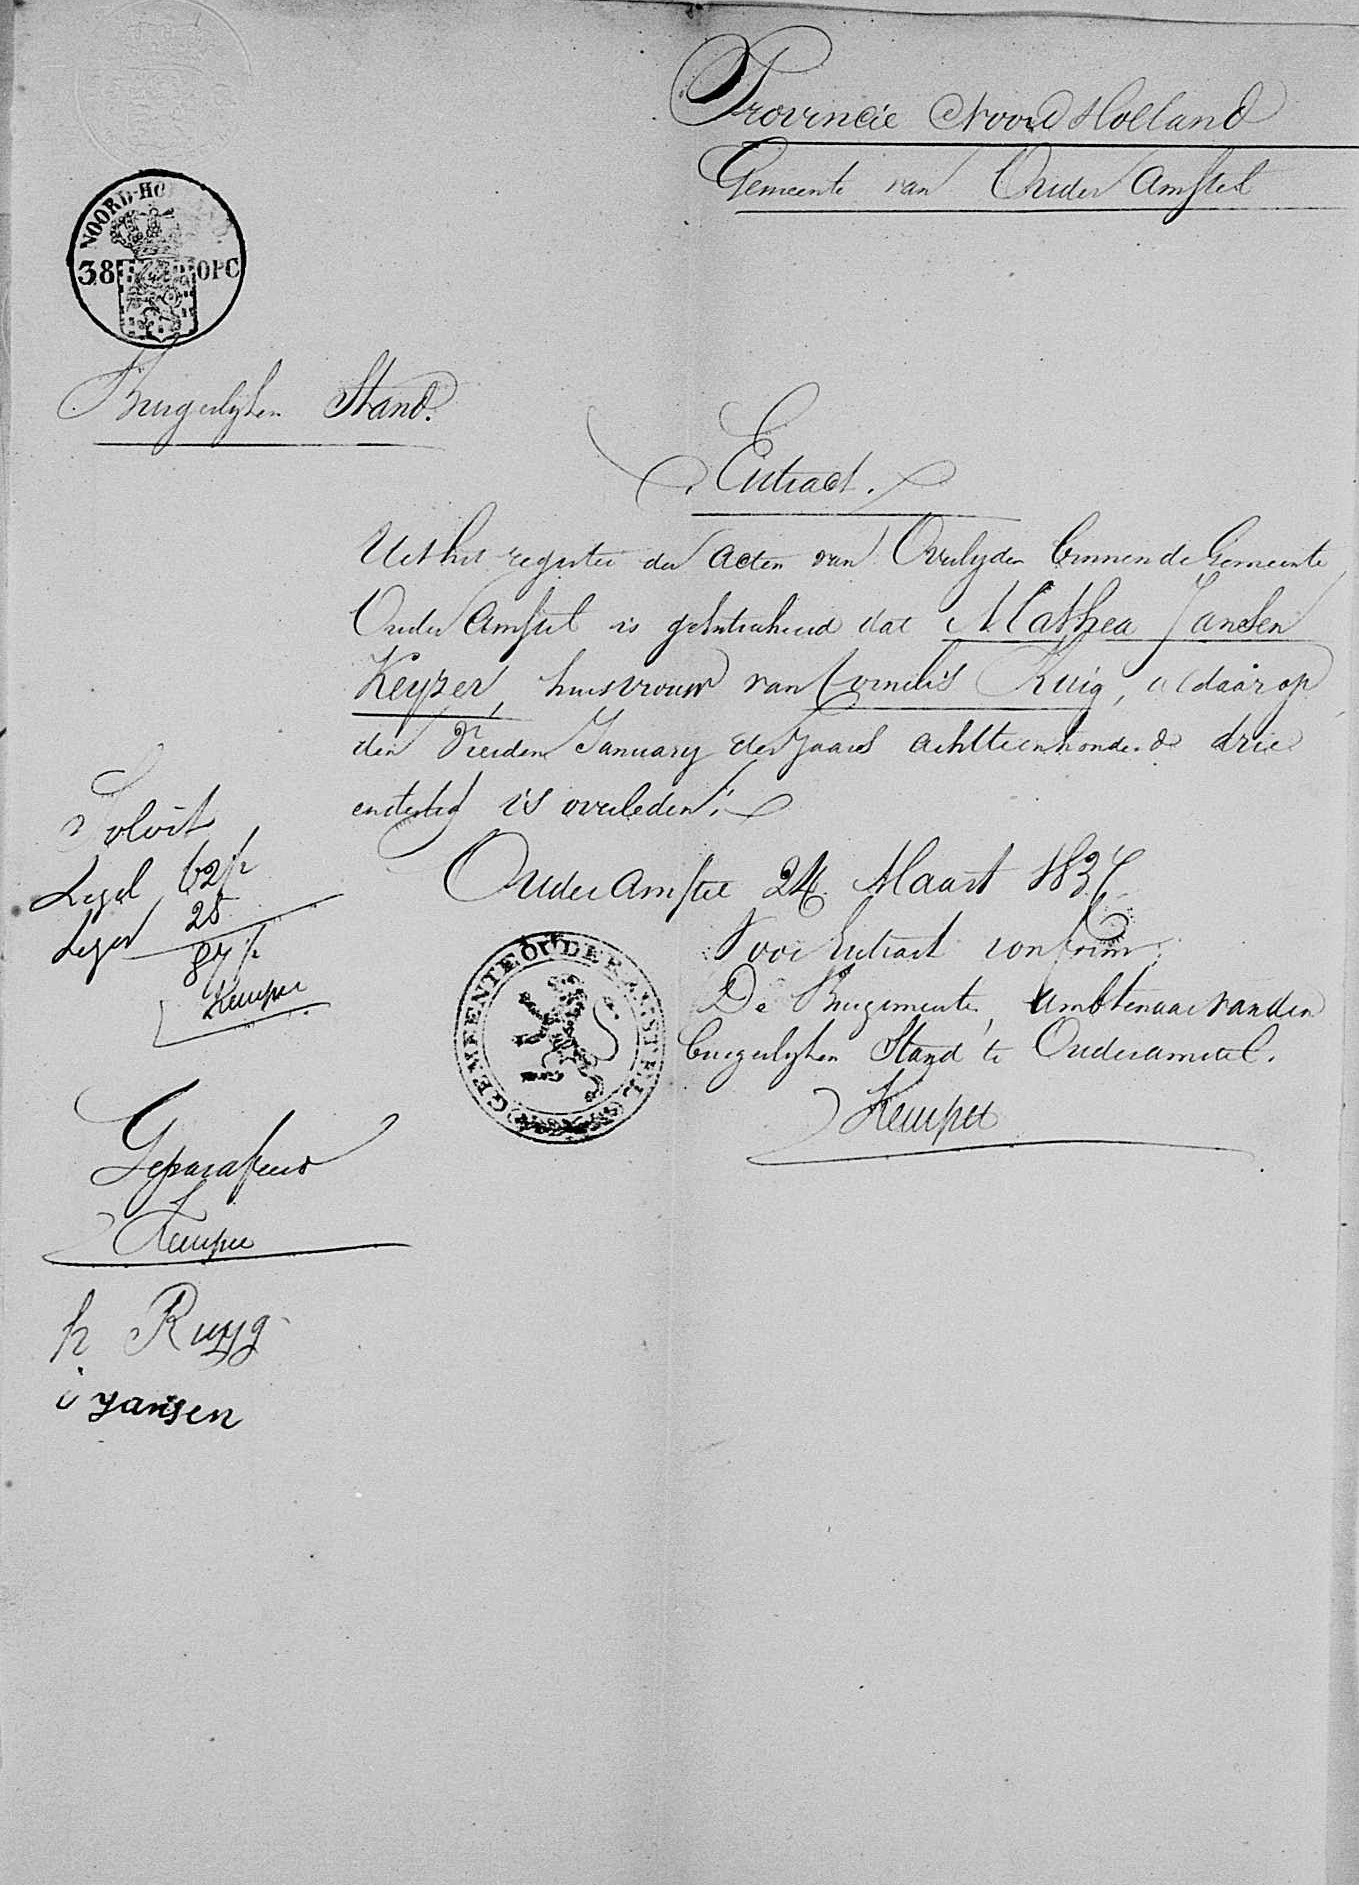 Provincie Noord Holland
Gemeente van Ouder Amstel
NOORD-HO D.
38 OPC
Burgerlyken Stand.
Extract.
Uit het register der Acten van Overlyden binnen de Gemeente
Ouder Amstel is geëxtraheerd dat Mathea Jansen
Keyzer, huisvrouw van Cornelis Ruig, aldaar op
den Vierden January des Jaars achttienhonderd drie
endertig is overleden.
Ouder Amstel 24 Maart 183
Voor Extract conform,
De Burgemeester, Ambtenaar van den
burgerlyken Stand te Ouderamstel.
Kemper
GEMEENTE OUDER AMSTEL
Solvit
Zegel 62½
Leges 25
87½
Kemper
Geparafeerd
Kemper
h Ruyg
i yansen